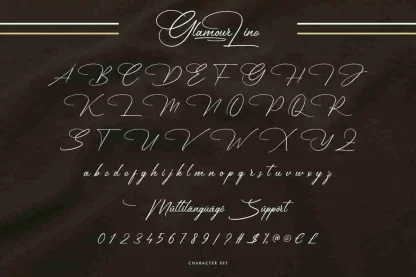 Glamour Line
A B C D E F G H I J
K L M N O P Q R
S T U V W X Y Z
a b c d e f g h i j k l m n o p q r s t u v w x y z
Múltilangüãgè Súppört
0 1 2 3 4 5 6 7 8 9 ! ? # $ % @ ©
CHARACTER SET